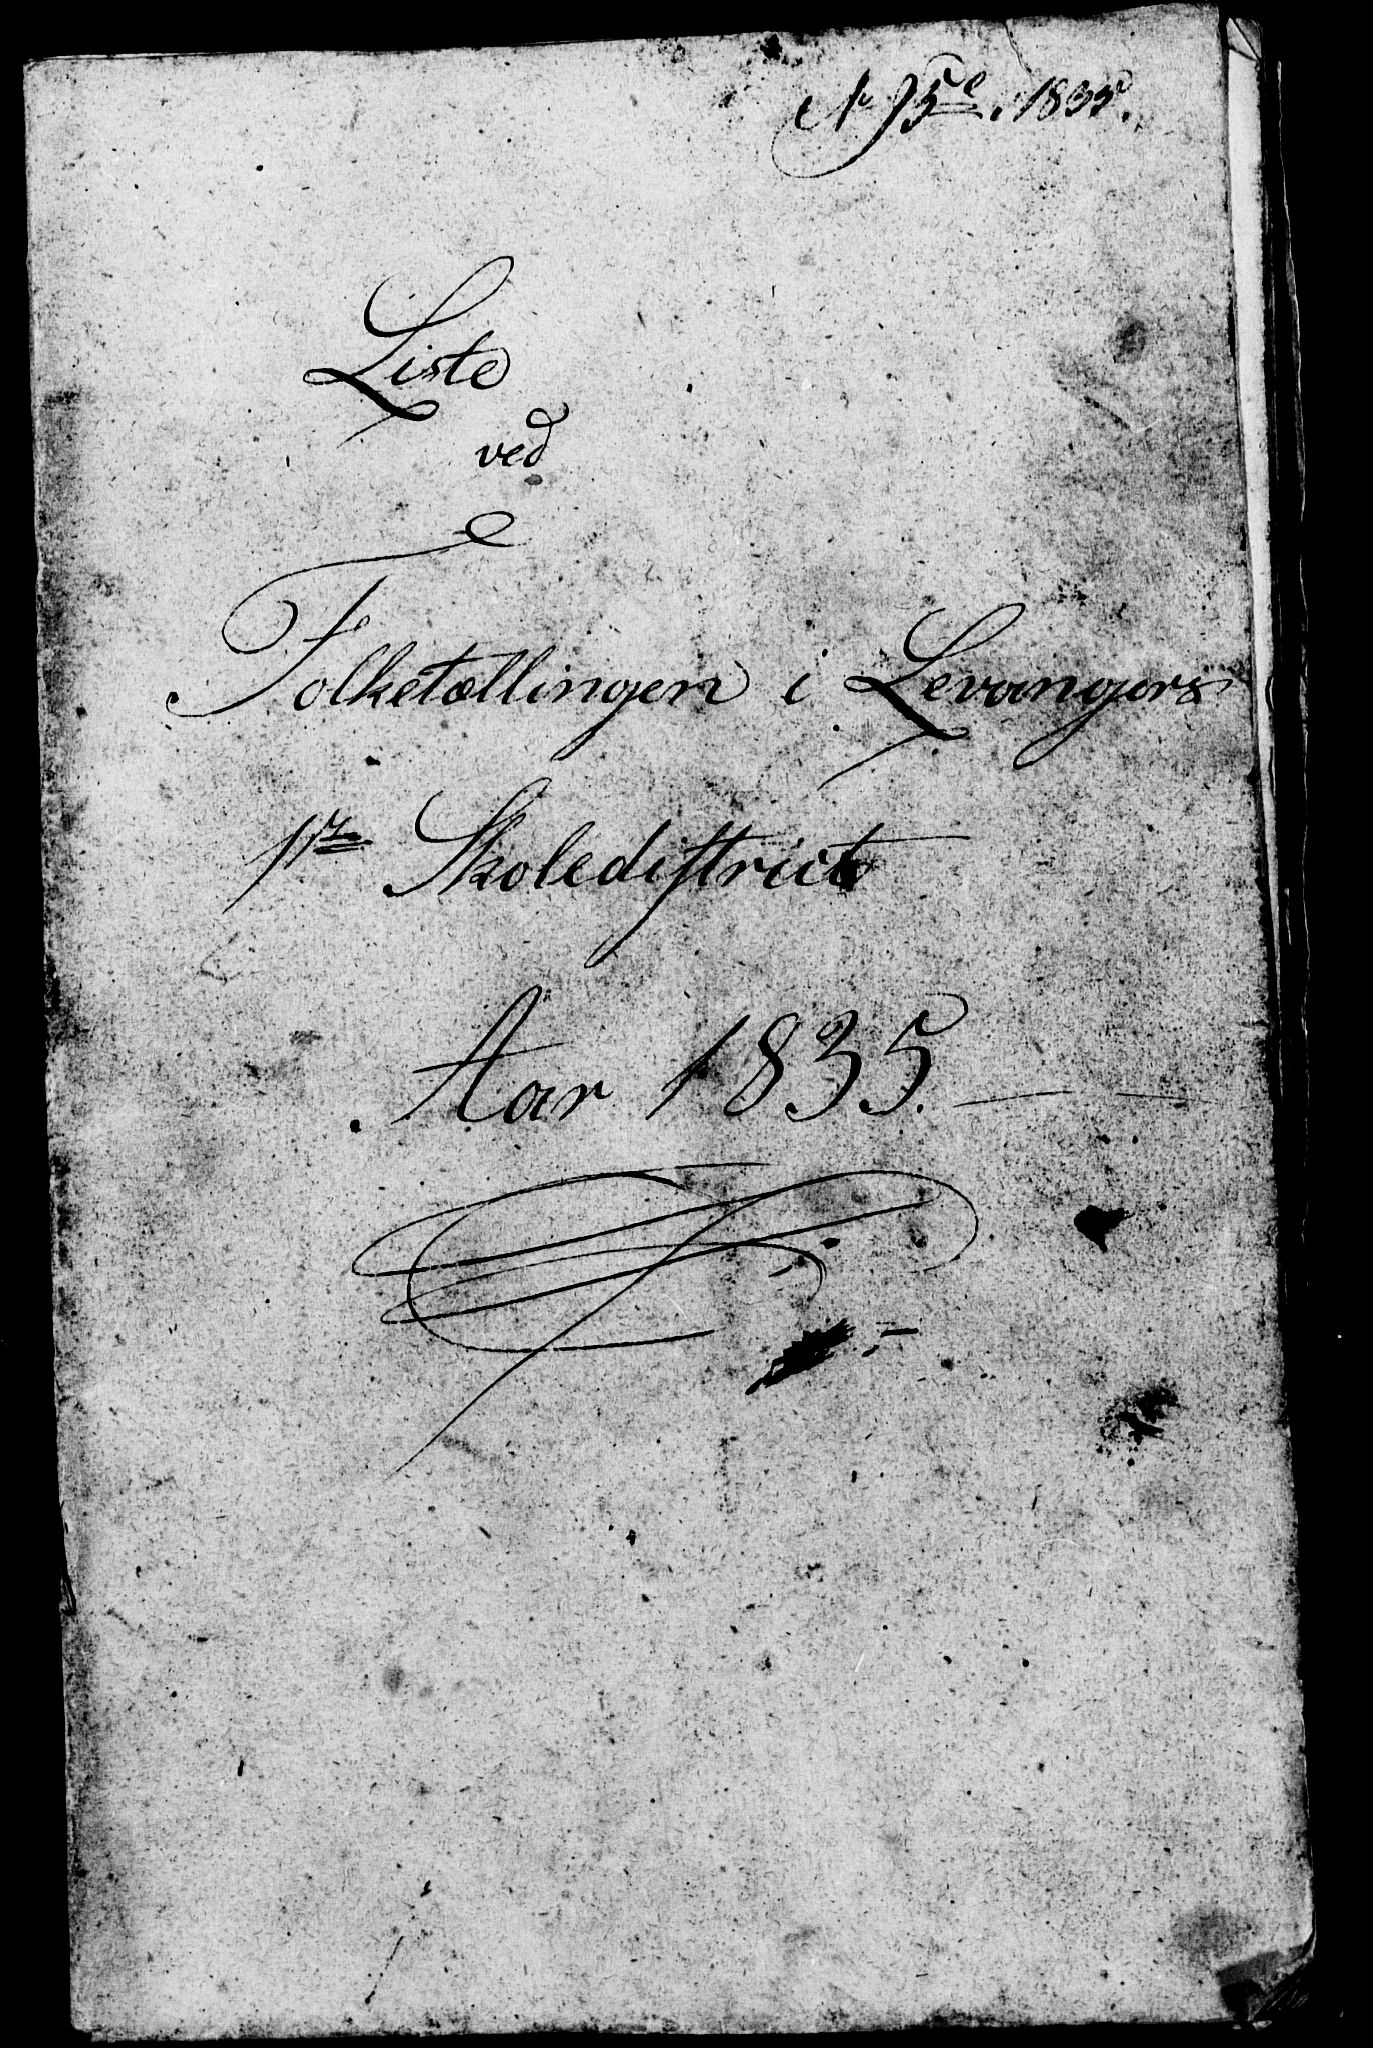 1835.
Liste
ved
Folketællingen i Levangers
1ste Skoledistrict
Aar 1835.